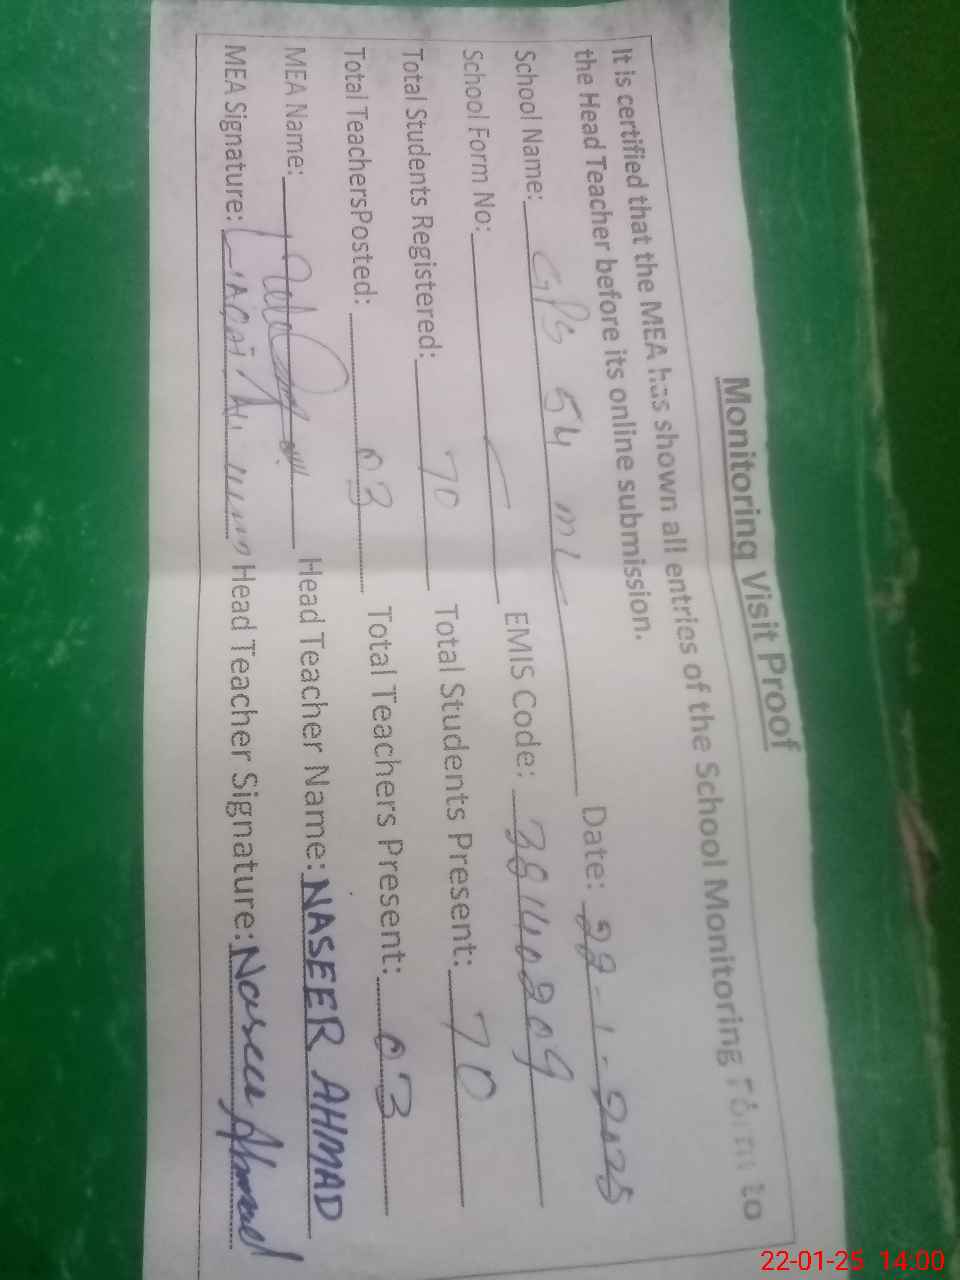 Monitoring Visit Proof
It is certified that the MEA has shown all entries of the School Monitoring Form to
the Head Teacher before its online submission.
School Name: GPS 54 ML Date: 22-1-2025
School Form No: EMIS Code: 38140209
Total Students Registered: 70 Total Students Present: 70
Total TeachersPosted: 03 Total Teachers Present: 03
MEA Name: Head Teacher Name: NASEER AHMAD
MEA Signature: Head Teacher Signature: Naseer Ahmad
22-01-25 14:00